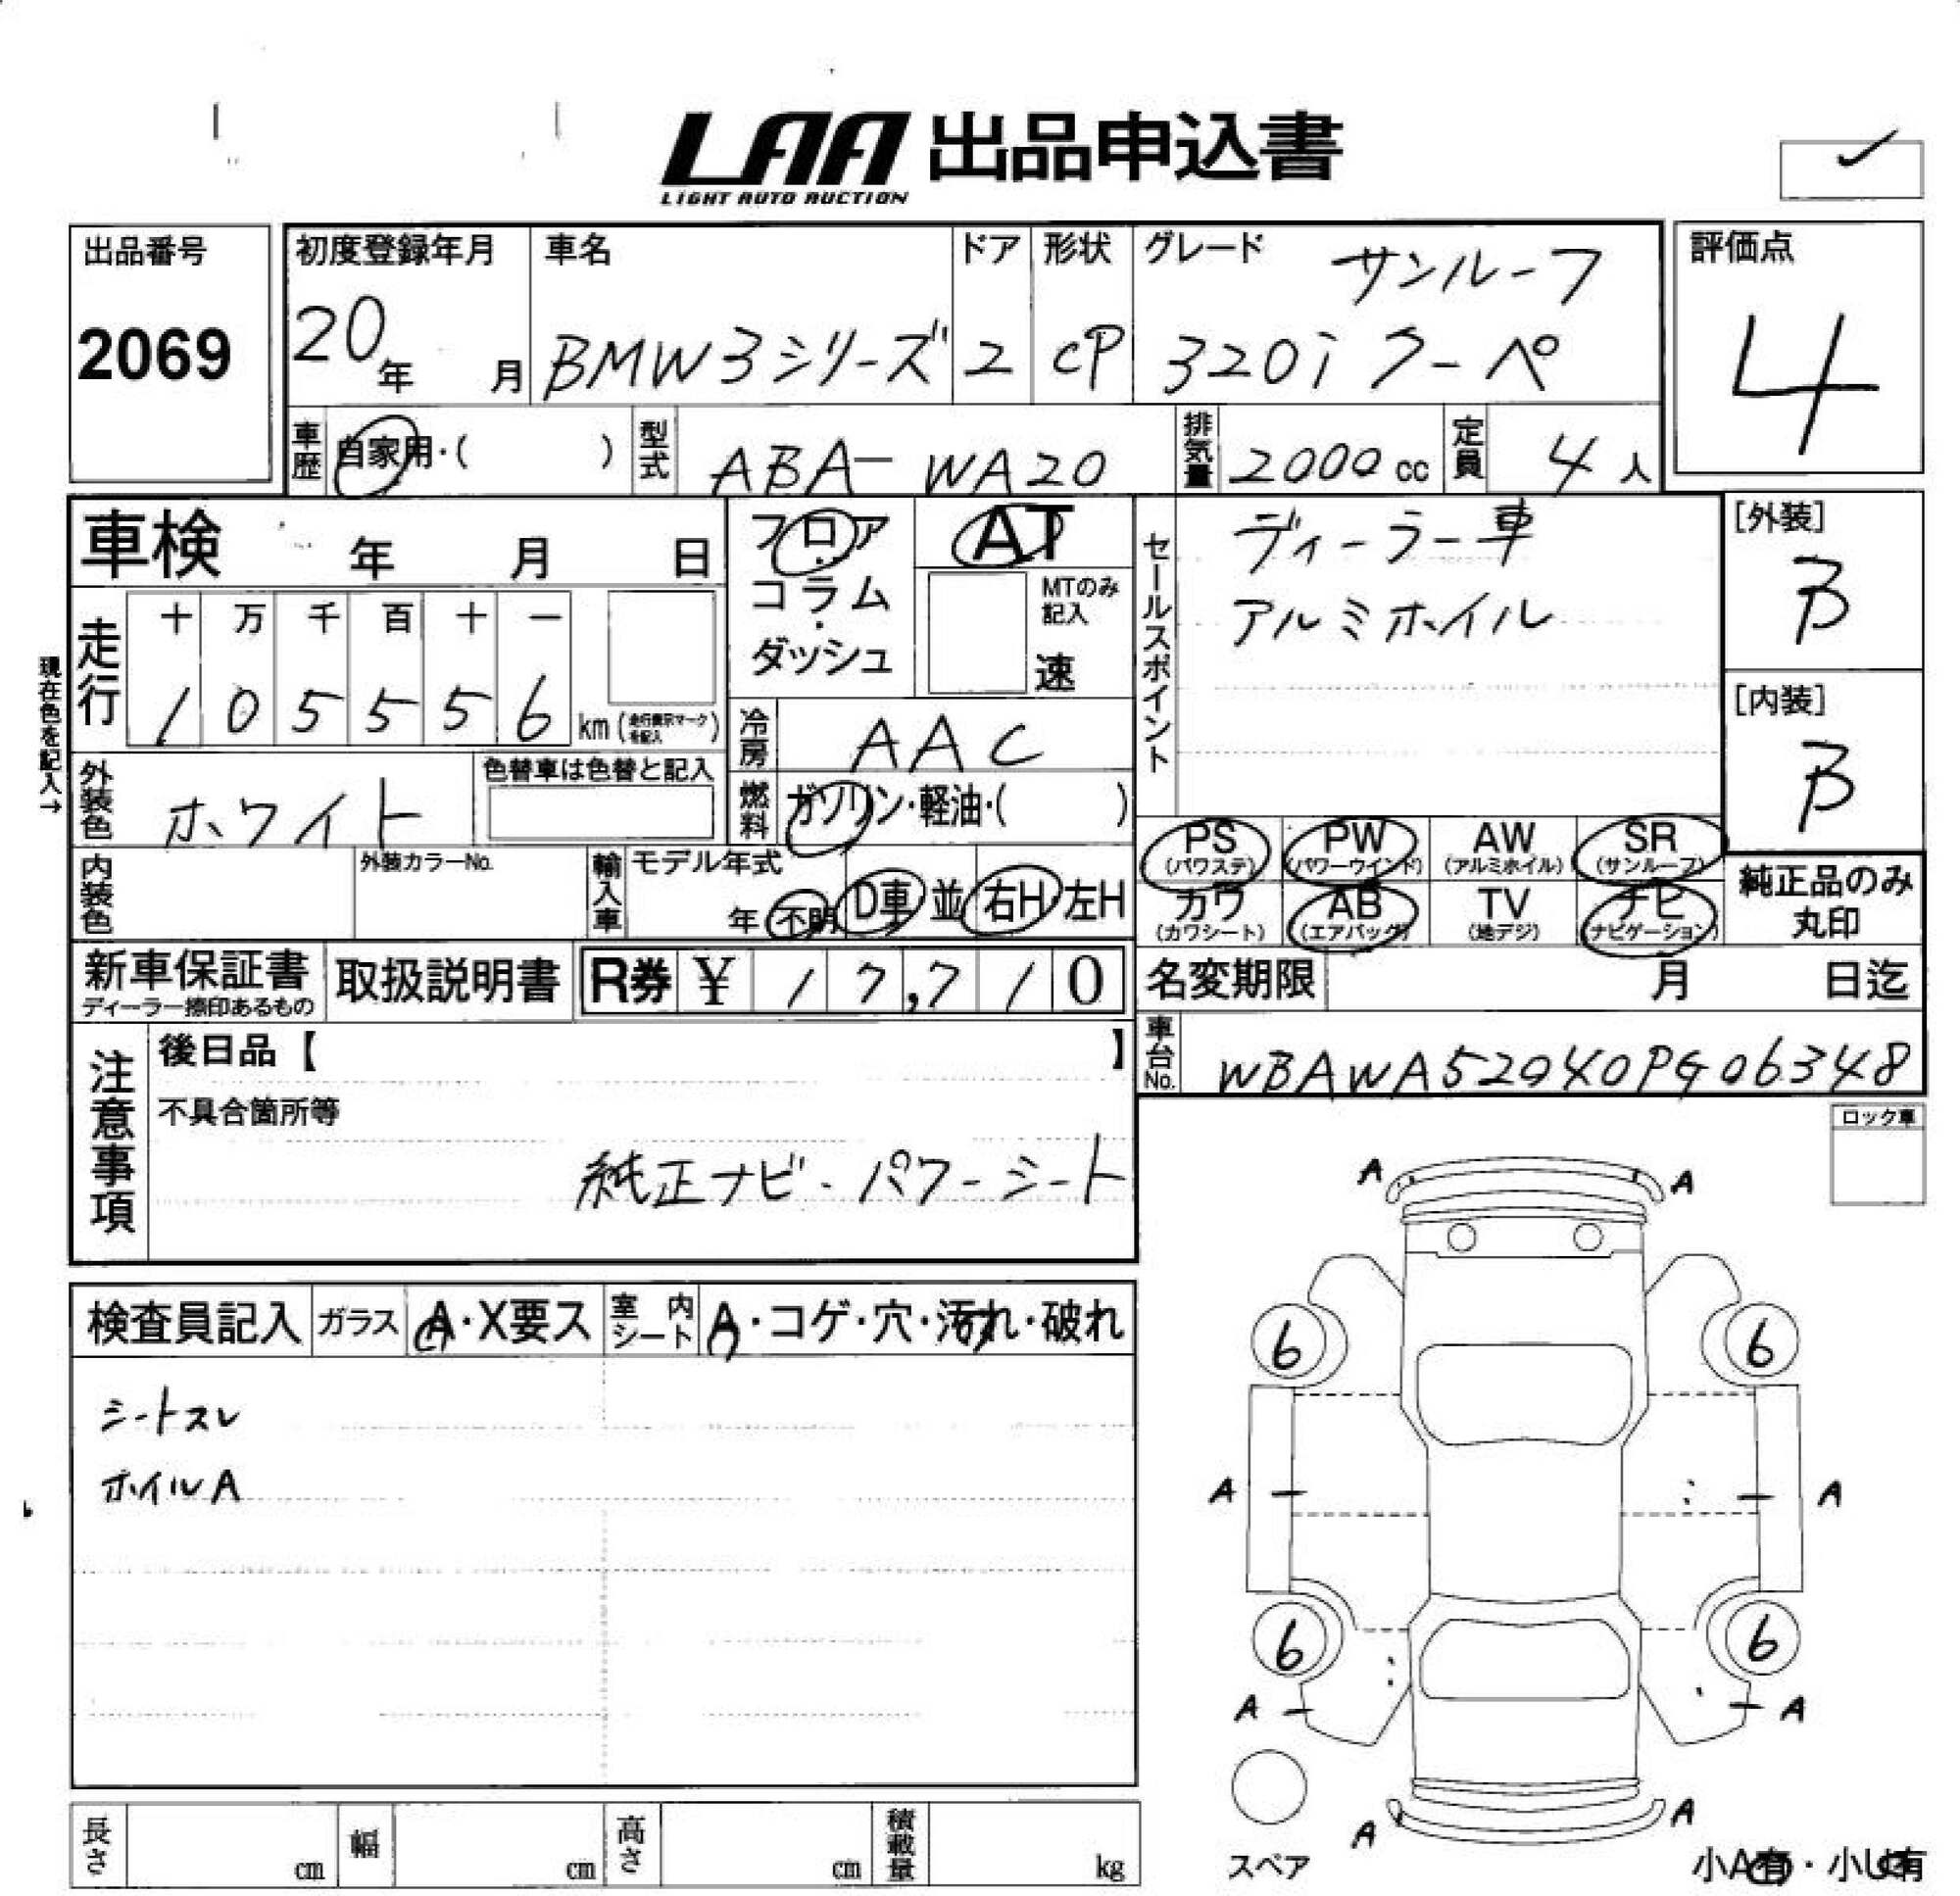 LAA 出品申込書
LIGHT AUTO AUCTION
出品番号
2069
初度登録年月
20年 月
車名
BMW3シリーズ
ドア
2
形状
CP
グレード
サンルーフ
320i クーペ
評価点
4
車歴 自家用・( )
型式 ABA-WA20
排気量 2000 cc
定員 4人
車検 年 月 日
フロア・コラム・ダッシュ
AT
MTのみ記入
速
セールスポイント
ディーラー車
アルミホイル
[外装]
B
[内装]
B
現在色を記入→
走行
十 万 千 百 十 一
1 0 5 5 5 6 km (走行表示マークを記入)
冷房 AAC
燃料 ガソリン・軽油・( )
外装色 ホワイト
色替車は色替と記入
内装色
外装カラーNo.
輸入車
モデル年式
年 不明 D車 並 右H 左H
PS (パワステ)
PW (パワーウインド)
AW (アルミホイル)
SR (サンルーフ)
カワ (カワシート)
AB (エアバッグ)
TV (地デジ)
ナビ (ナビゲーション)
純正品のみ
丸印
新車保証書
ディーラー捺印あるもの
取扱説明書
R券 ¥ 17,710
名変期限 月 日迄
車台No. WBAWA52040PG06348
注意事項
後日品【 】
不具合箇所等
純正ナビ・パワーシート
ロック車
検査員記入 ガラス A・X要ス 室内シート A・コゲ・穴・汚れ・破れ
シートスレ
ホイルA
A A
6 6
A A
6 6
A A
A A
スペア
小A有・小U有
長さ cm 幅 cm 高さ cm 積載量 kg